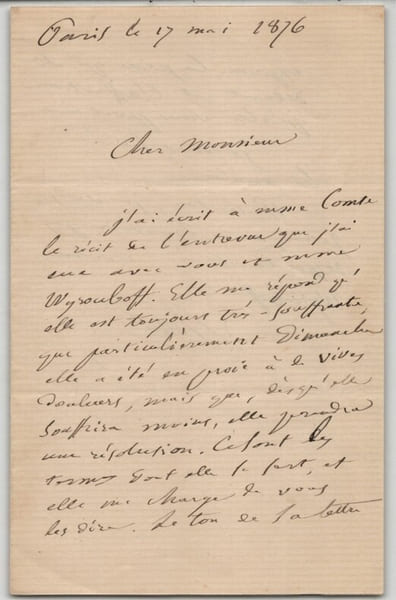 Paris le 17 mai 1876
Cher Monsieur
j'ai écrit à mme Comte
le récit de l'entrevue que j'ai
eue avec vous et mme
Wyrouboff. Elle me répond q'
elle est toujours très-souffrante,
que particulièrement Dimanche
elle a été en proie à de vives
douleurs, mais que, dès qu'elle
souffrira moins, elle prendra
une résolution. Ce sont les
termes dont elle se sert, et
elle me charge de vous
les dire. Le ton de sa lettre